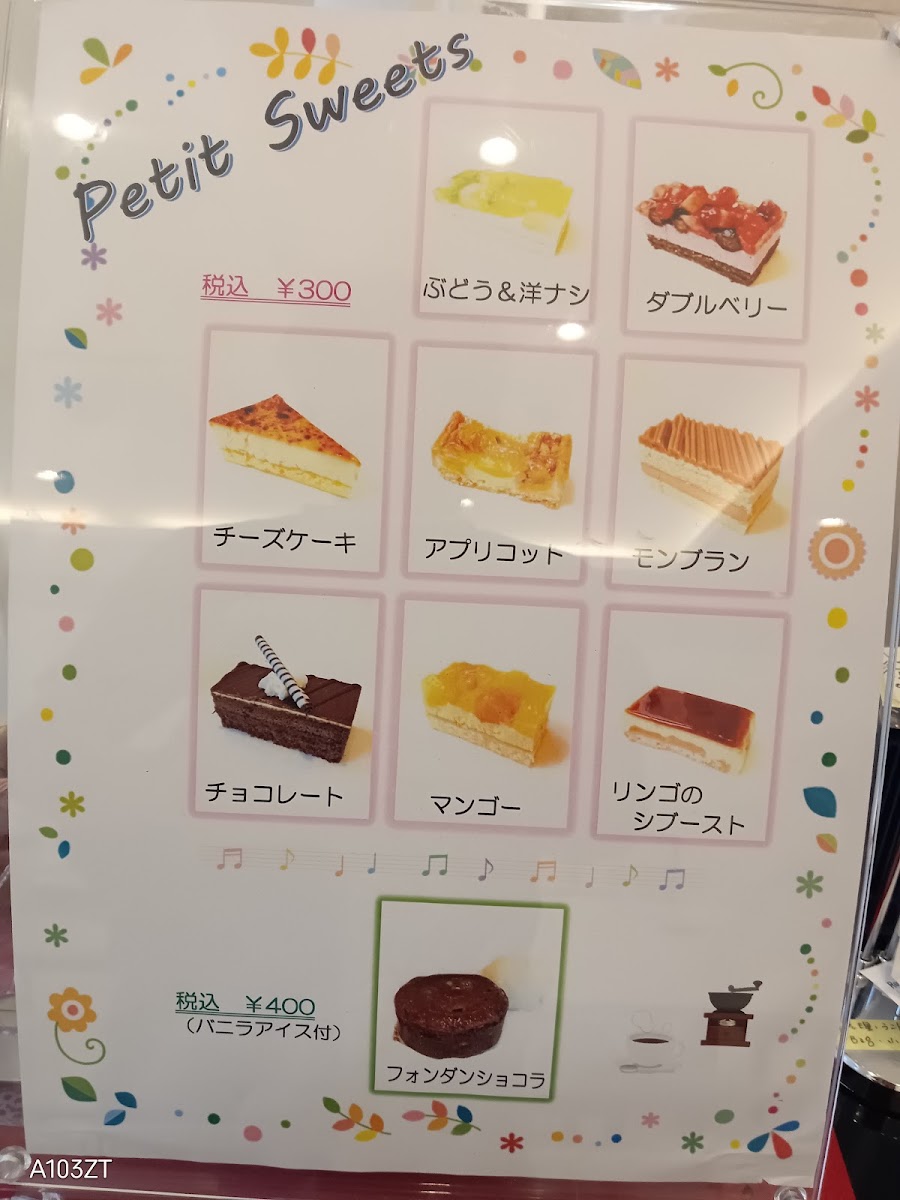 Petit Sweets
税込 ¥300
ぶどう＆洋ナシ
ダブルベリー
チーズケーキ
アプリコット
モンブラン
チョコレート
マンゴー
リンゴの
シブースト
税込 ¥400
（バニラアイス付）
フォンダンショコラ
A103ZT